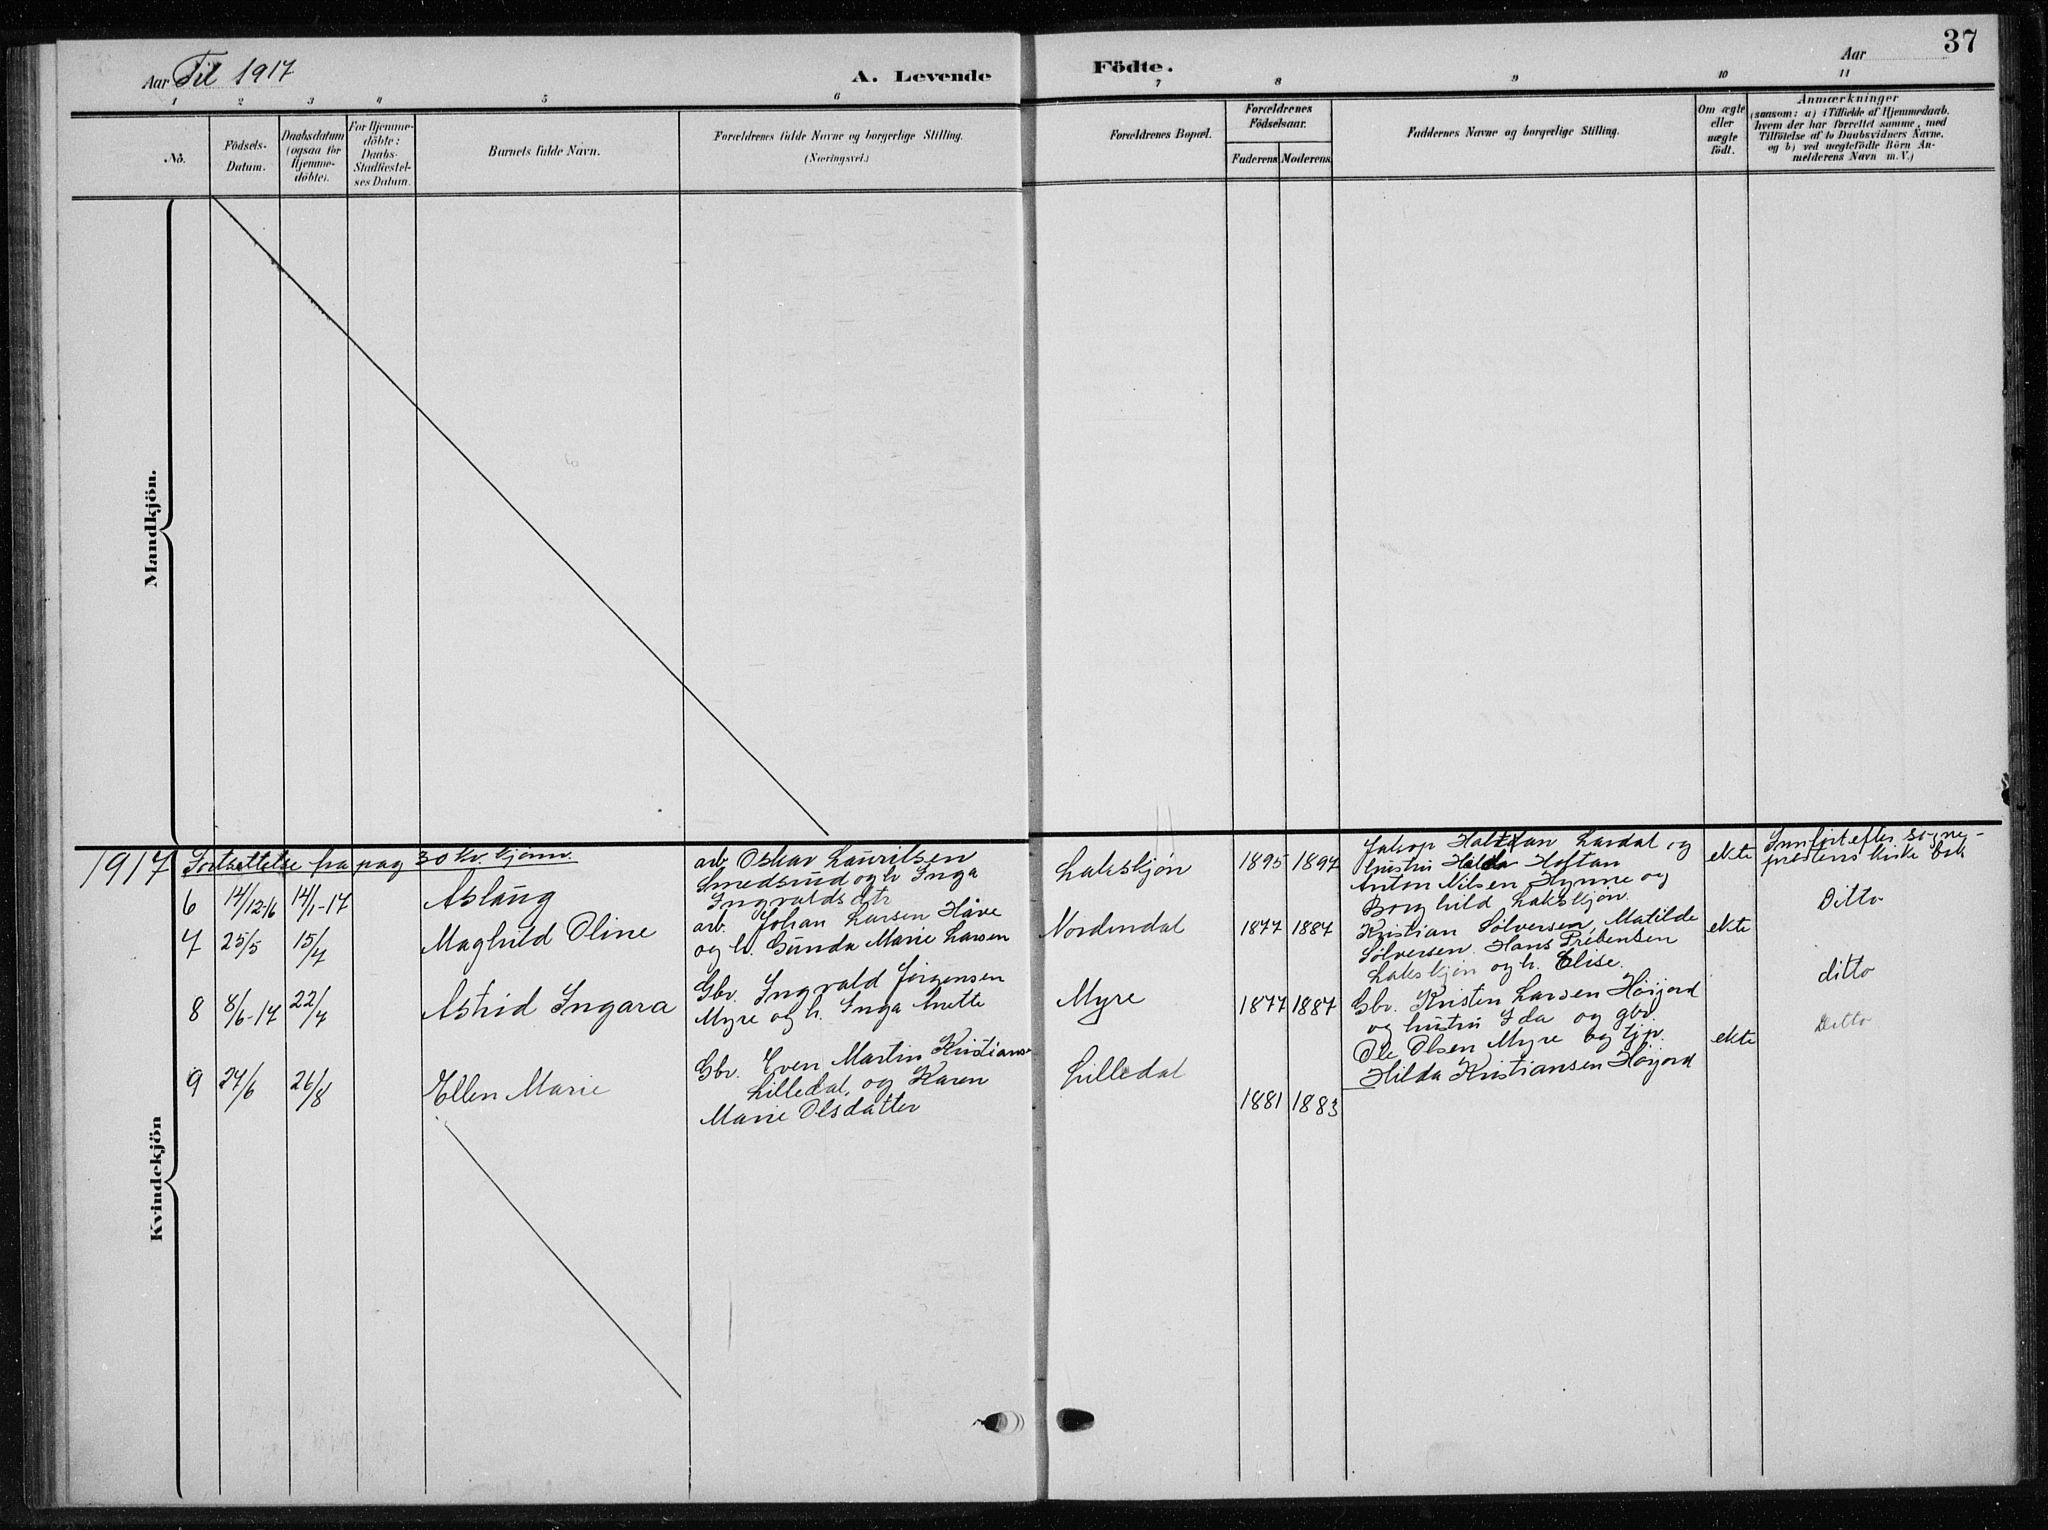 37
Aar Til 1917
A. Levende
Födte.
Aar
1 2 3 4 5 6 7 8 9 10 11
No.
Födsels-
Datum.
Daabsdatum
(ogsaa for
Hjemme-
döbte).
For Hjemme-
döbte:
Daabs-
Stadfæstel-
ses Datum.
Barnets fulde Navn.
Forældrenes fulde Navne og borgerlige Stilling.
(Næringsvei.)
Forældrenes Bopæl.
Forældrenes
Födselsaar.
Faderens Moderens
Faddernes Navne og borgerlige Stilling.
Om ægte
eller
uægte
födt.
Anmærkninger
(saasom: a) i Tilfælde af Hjemmedaab,
hvem der har forrettet samme, med
Tilföielse af to Daabsvidners Navne,
og b) ved uægtefödte Börn An-
melderens Navn m. V.)
Mandkjön.
Kvindekjön
1917 Fortsættelse fra pag 30 kv. kjønn.
6 14/12-16 14/1-17 Aslaug
arb. Oskar Lauritsen
Smedsrud og h. Inga
Ingvaldsdtr
Lakskjøn 1895 1897
Jakop Halfdan Lardal og
hustru Hilda Hoftan
Anton Nilsen Hynne og
Borghild Lakskjøn.
ekte
Innført efter sogne-
prestens kirkebok
7 25/5 15/7 Maghild Oline
arb. Johan Larsen Håve
og h. Gunda Marie Larsen
Nordendal 1877 1887
Kristian Sølversen, Matilde
Sølversen. Hans Prebensen
Lakskjøn og h. Elise.
ekte
Ditto
8 8/6-17 22/7 Astrid Ingara
Gbr. Ingvald Jørgensen
Myre og h. Inga Anette
Myre 1877 1887
Gbr. Kristen Larsen Höijord
og hustru Ida og gbr.
Ole Olsen Myre og tjp.
Hilda Kristiansen Höijord
ekte
ditto
9 24/6 26/8 Ellen Marie
Gbr. Even Martin Kristians
Lilledal, og Karen
Marie Olsdatter
Lilledal 1881 1883
Ditto